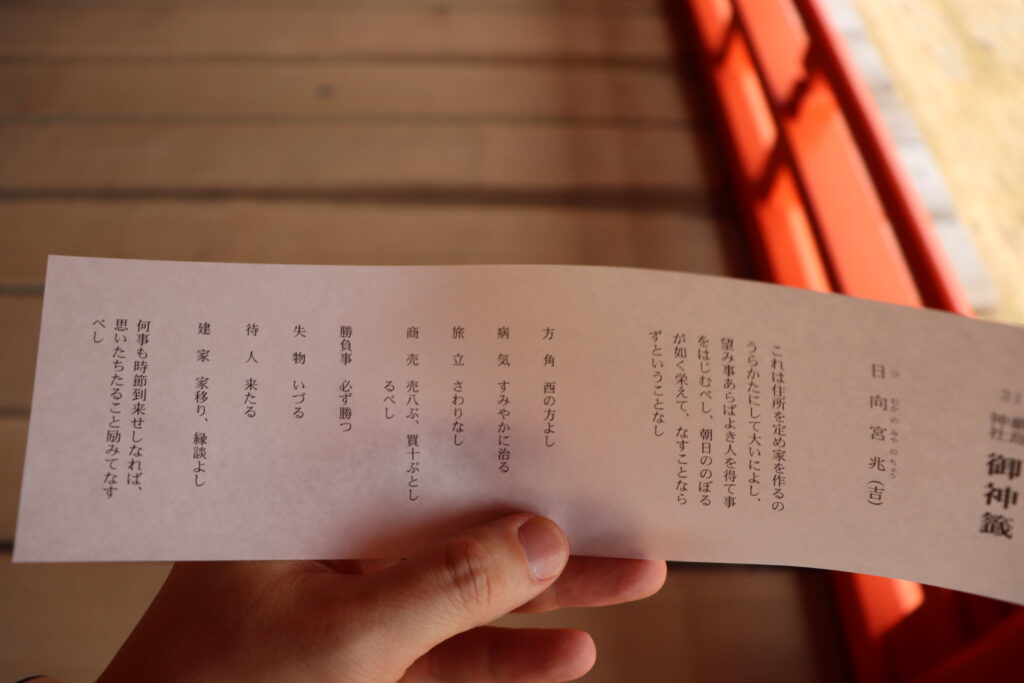 31
厳島
神社
御神籤
日向宮兆(吉)
ひ むか の みや の ちょう
これは住所を定め家を作るの
うらかたにして大いによし、
望み事あらばよき人を得て事
をはじむべし、朝日ののぼる
が如く栄えて、なすことなら
ずということなし
方角 西の方よし
病気 すみやかに治る
旅立 さわりなし
商売 売八ぶ、買十ぶとし
るべし
勝負事 必ず勝つ
失物 いづる
待人 来たる
建家 家移り、縁談よし
何事も時節到来せしなれば、
思いたちたること励みてなす
べし